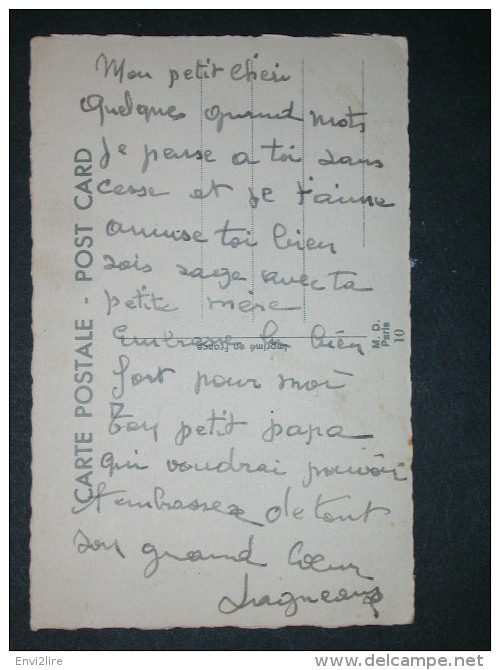 Mon petit Chéri
Quelques mots
Je pense a toi sans
cesse et je t'aime
amuse toi bien
sois sage avec ta
petite mère
Embrasse la bien
fort pour moi
Ton petit papa
qui voudrai pouvoir
t'embrassez de tout
son grand Cœur
CARTE POSTALE - POST CARD
Imprimé en France
M. D.
Paris
10
Envi2lire
www.delcampe.net